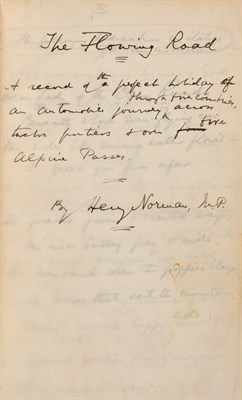 The Flowing Road
A record of a perfect holiday &
an automobile journey through five countries, across
twelve frontiers & over five
Alpine Passes.
By Henry Norman, M.P.